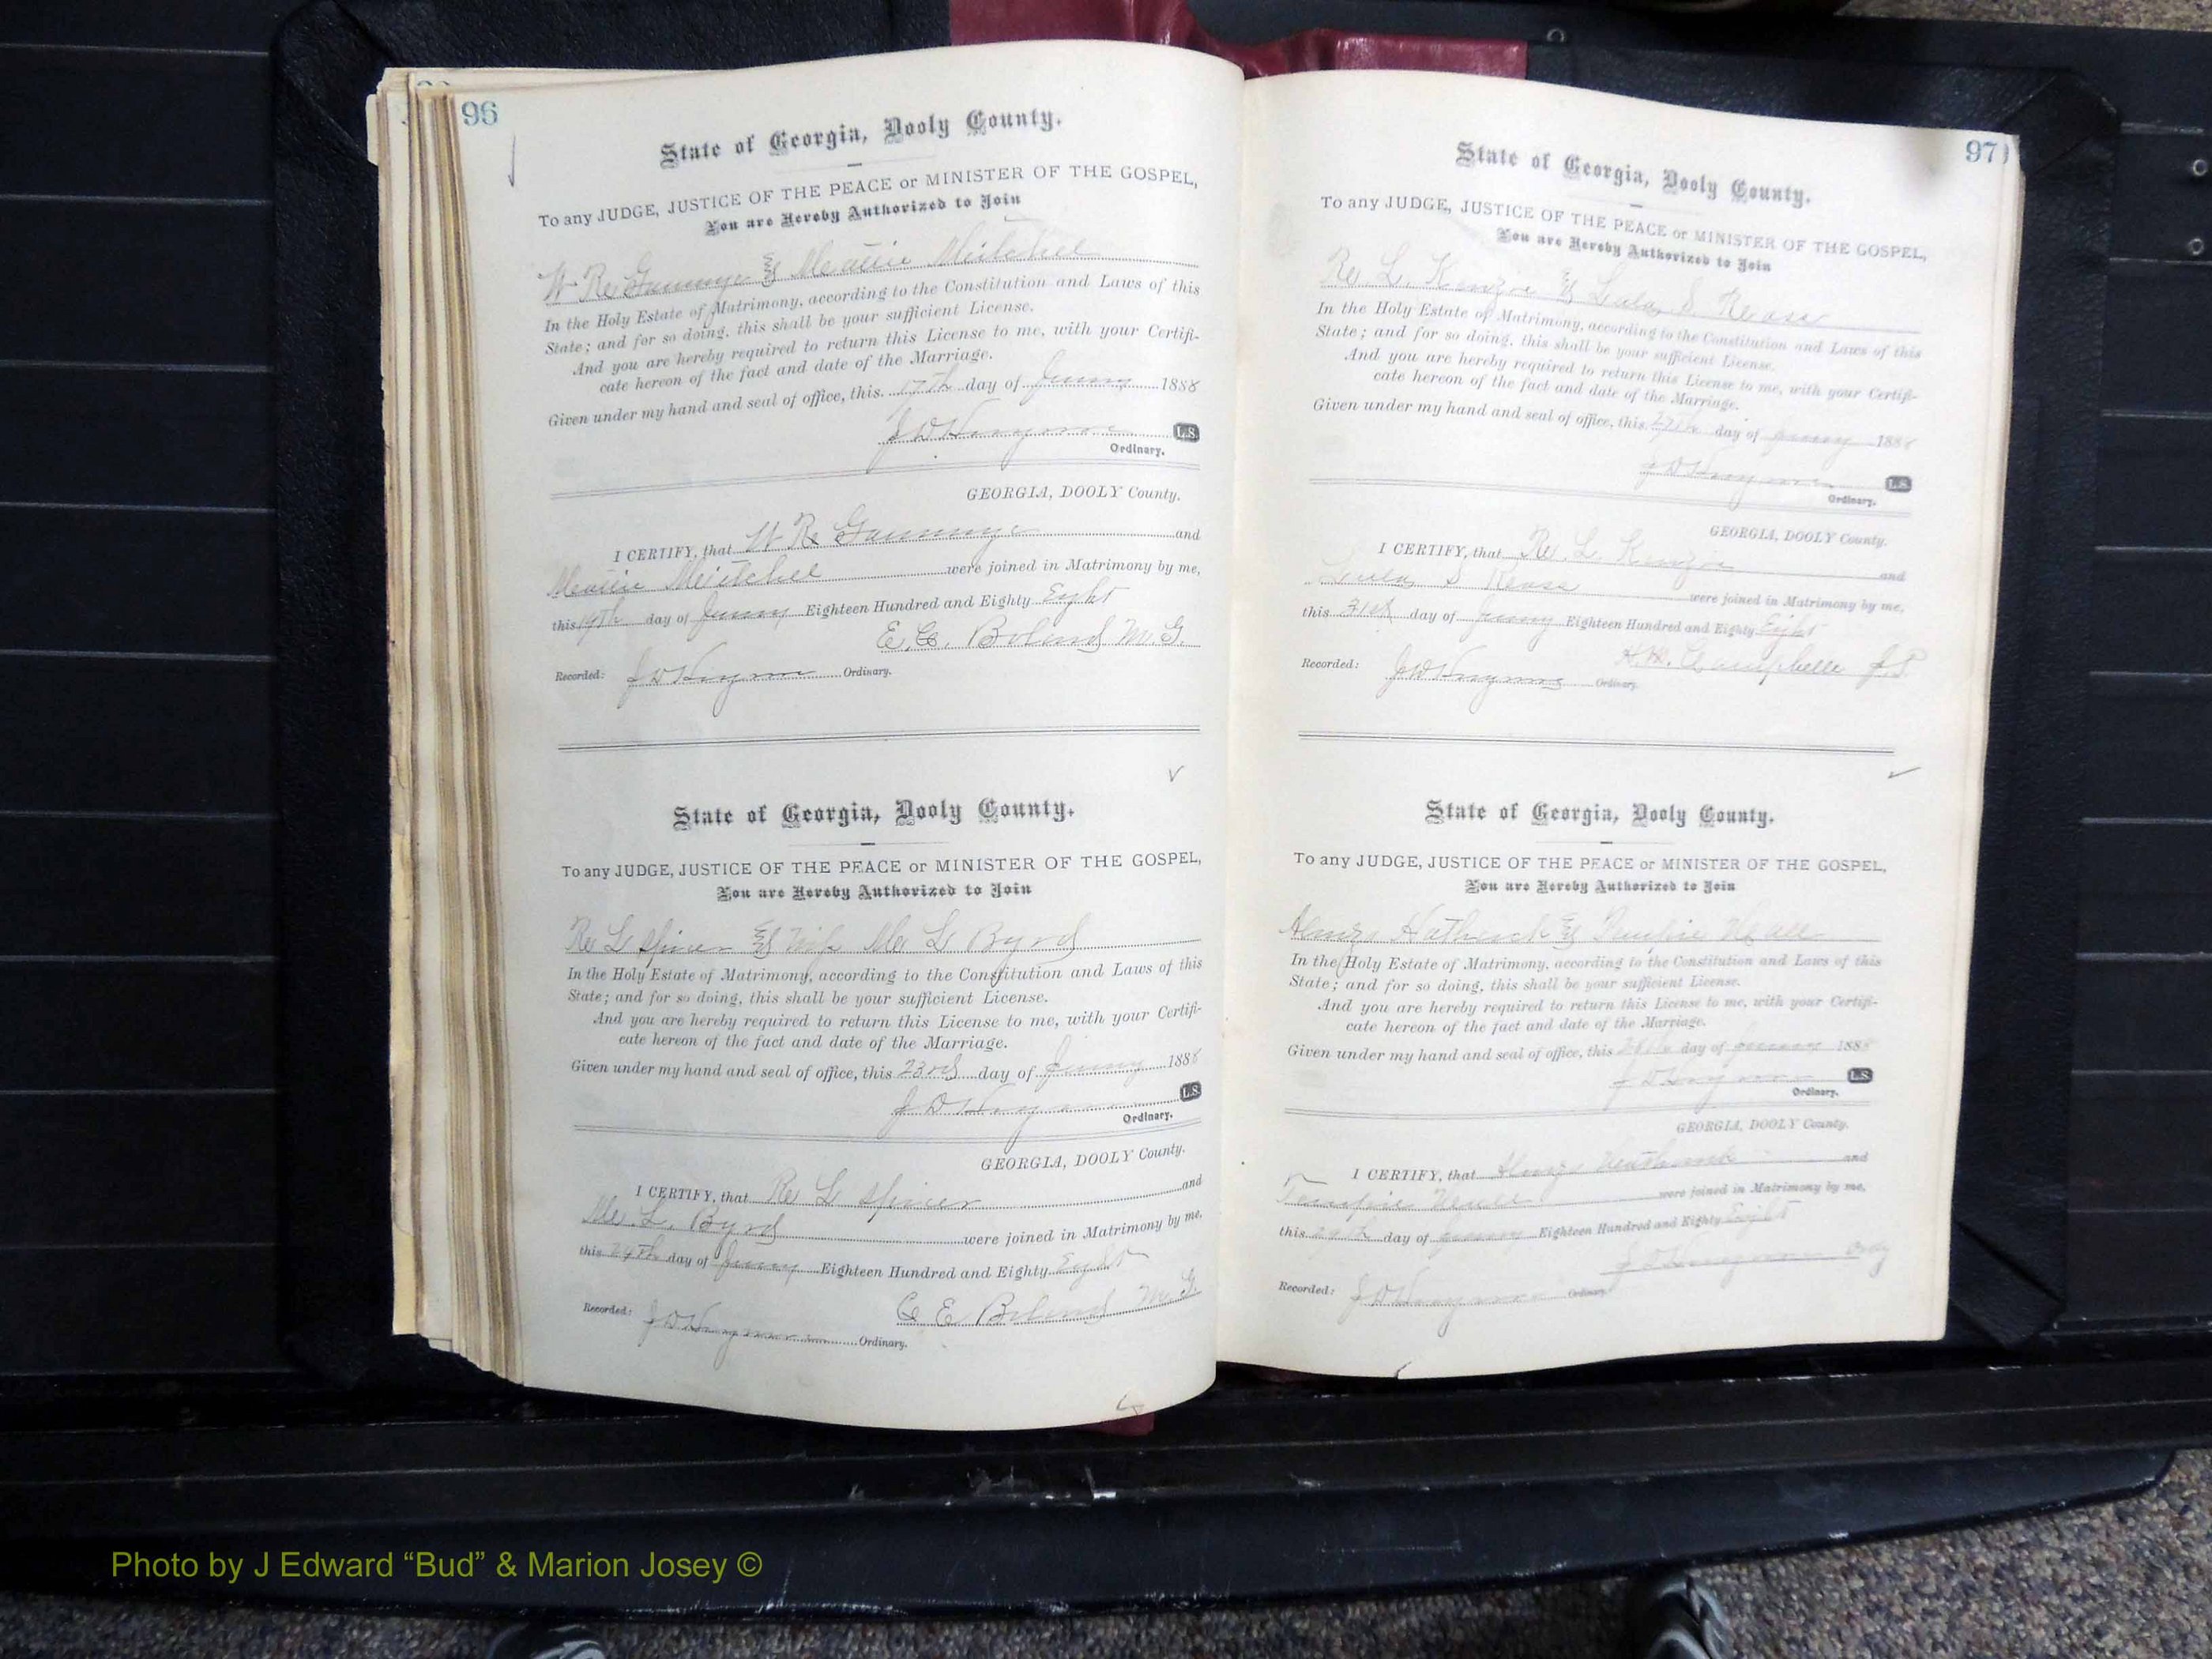 96
State of Georgia, Dooly County.
To any JUDGE, JUSTICE OF THE PEACE or MINISTER OF THE GOSPEL,
You are Hereby Authorized to Join
W R Gammage & Mitchel
In the Holy Estate of Matrimony, according to the Constitution and Laws of this
State; and for so doing, this shall be your sufficient License.
And you are hereby required to return this License to me, with your Certifi-
cate hereon of the fact and date of the Marriage.
Given under my hand and seal of office, this 17th day of 1888
L.S.
Ordinary.
GEORGIA, DOOLY County.
I CERTIFY, that W R and
were joined in Matrimony by me,
this 19th day of Eighteen Hundred and Eighty Eight
M.G.
Recorded: Ordinary.
State of Georgia, Dooly County.
To any JUDGE, JUSTICE OF THE PEACE or MINISTER OF THE GOSPEL,
You are Hereby Authorized to Join
R L & L Byrd
In the Holy Estate of Matrimony, according to the Constitution and Laws of this
State; and for so doing, this shall be your sufficient License.
And you are hereby required to return this License to me, with your Certifi-
cate hereon of the fact and date of the Marriage.
Given under my hand and seal of office, this 23rd day of 1888
L.S.
Ordinary.
GEORGIA, DOOLY County.
I CERTIFY, that R L and
L. Byrd were joined in Matrimony by me,
this day of Eighteen Hundred and Eighty Eight
M.G.
Recorded: Ordinary.
97
State of Georgia, Dooly County.
To any JUDGE, JUSTICE OF THE PEACE or MINISTER OF THE GOSPEL,
You are Hereby Authorized to Join
R. L. & Lula S.
In the Holy Estate of Matrimony, according to the Constitution and Laws of this
State; and for so doing, this shall be your sufficient License.
And you are hereby required to return this License to me, with your Certifi-
cate hereon of the fact and date of the Marriage.
Given under my hand and seal of office, this day of 1888
L.S.
Ordinary.
GEORGIA, DOOLY County.
I CERTIFY, that R. L. and
Lula S were joined in Matrimony by me,
this 31st day of Eighteen Hundred and Eighty Eight
Campbell J.P.
Recorded: Ordinary.
State of Georgia, Dooly County.
To any JUDGE, JUSTICE OF THE PEACE or MINISTER OF THE GOSPEL,
You are Hereby Authorized to Join
&
In the Holy Estate of Matrimony, according to the Constitution and Laws of this
State; and for so doing, this shall be your sufficient License.
And you are hereby required to return this License to me, with your Certifi-
cate hereon of the fact and date of the Marriage.
Given under my hand and seal of office, this day of 1888
L.S.
Ordinary.
GEORGIA, DOOLY County.
I CERTIFY, that and
were joined in Matrimony by me,
this 29th day of Eighteen Hundred and Eighty Eight
Ordy
Recorded: Ordinary.
Photo by J Edward “Bud” & Marion Josey ©